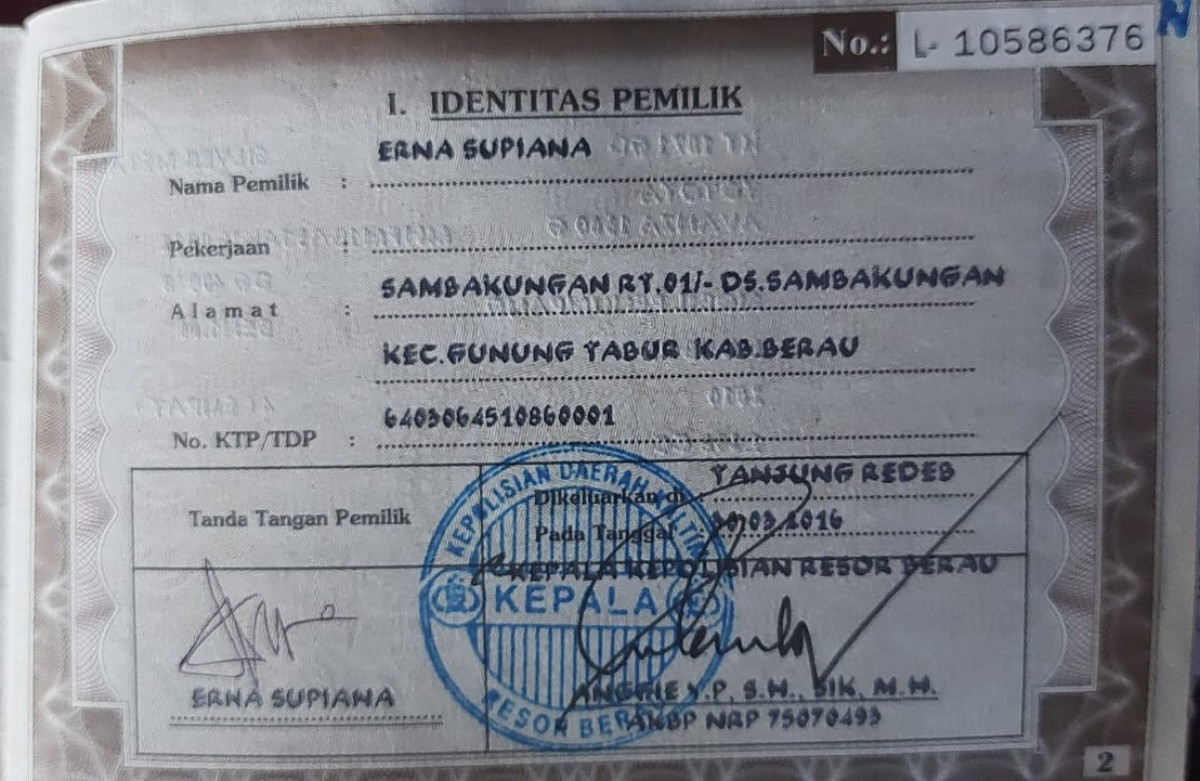 No.: L- 10586376
I. IDENTITAS PEMILIK
ERNA SUPIANA
Nama Pemilik :
Pekerjaan :
SAMBAKUNGAN RT.01/- DS.SAMBAKUNGAN
Alamat :
KEC.GUNUNG TABUR KAB.BERAU
6403064510860001
No. KTP/TDP :
TANJUNG REDEB
Dikeluarkan di
Tanda Tangan Pemilik
Pada Tanggal : 03 2016
KEPALA KEPOLISIAN RESOR BERAU
KEPOLISIAN DAERAH KALTIM
KEPALA
RESOR BERAU
ERNA SUPIANA
ANGGIE Y.P, S.H., SIK, M.H.
AKBP NRP 75070493
2